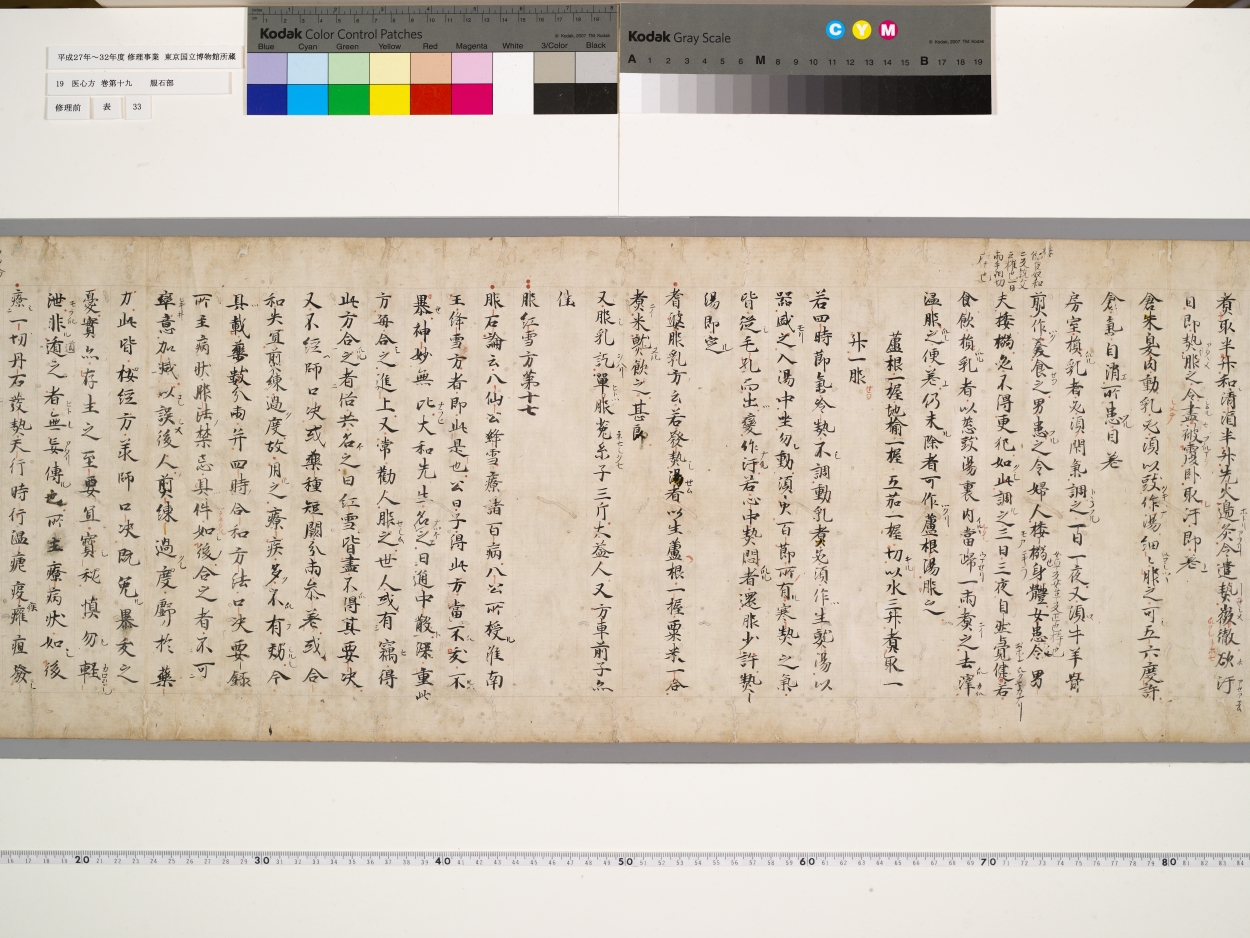 平成27年～32年度 修理事業 東京国立博物館所蔵
19 医心方 巻第十九 服石部
修理前 表 33
Kodak Color Control Patches
© Kodak, 2007 TM: Kodak
Blue Cyan Green Yellow Red Magenta White 3/Color Black
Kodak Gray Scale
C Y M
© Kodak, 2007 TM: Kodak
A 1 2 3 4 5 6 M 8 9 10 11 12 13 14 15 B 17 18 19
煮取半升和清酒半升先火邊灸令遣熱徹徹欲汗
日即熱服之令盡被覆臥取汗即差
食朱臭肉動乳必須以豉作湯細々服之可五六度許
食氣自消所患自差
房室損乳者必須閇氣調之一百一夜又須牛羊骨
煎作羹食之男患之令婦人棲榻身體女患令男
夫棲榻必不得更犯如此調之三日三夜自然平健若
食飲損乳者以葱豉湯裏内當歸一兩煮之去滓
温服之便差仍未除者可作蘆根湯服之
蘆根一握地榆一握五茄一握切以水三升煮取一
升一服
若四時節氣冷熱不調動乳者必須作生熟湯以
器盛之入湯中坐勿動須臾百節所有寒熱之氣
皆從毛孔而出變作汗若心中熱悶者還服少許熱
湯即定
耆婆服乳方云若發熱渴者以生蘆根一握粟米一合
煮米熟飲之甚良
又服乳訖單服菟糸子三斤大益人又方車前子亦
佳
服紅雪方第十七
服石論云八仙公絳雪療諸百病八公所授淮南
王絳雪方者即此是也公曰予得此方當不發不
暴神妙無比大和先生名之曰通中散深重此
方每合之進上又常勸人服之世人或有竊得
此方合之者俗共名之曰紅雪皆盡不得其要决
又不經師口决或藥種短闕分兩參差或合
和失宜煎練過度故用之療疾多不有効今
具載藥數分兩并四時合和方法口决要錄
所主病狀服法禁忌具件如後合之者不可
率意加減以誤後人煎練過度虧於藥
力此皆桉經方承師口决既免暴夭之
憂實亦存生之至要宜寶秘慎勿輕
泄非道之者無妄傳也所主療病狀如後
療一切丹石發熱天行時行温瘧疫癰疽發
20 30 40 50 60 70 80